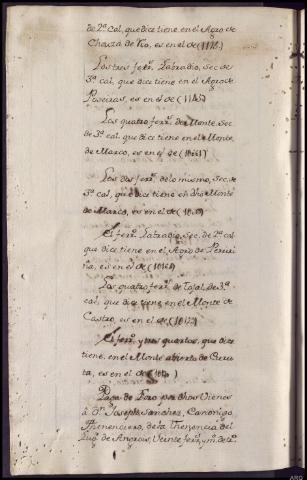 de 2ª Cal, que dice tiene en el Agro de
Chouza de Tio, es en el de (1118.)
Los tres ferr.ˢ Labradio, sec. de
3ª cal, que dice tiene en el Agro de
Poseiras, es en el de (1145.)
Los quatro ferr.ˢ de Monte, Sec.
de 3ª cal. que dice tiene en el Monte
de Marco, es en el de
Los dos ferr.ˢ de lo mismo, Sec. de
3ª cal, que dice tiene en dho Monte
de Marco, es en el de
El ferr.ᵒ Labradio, Sec. de 2ª cal
que dice tiene en el Agro de
es en el de
Los quatro ferr.ˢ de Tojal, de 3ª
cal, que dice tiene en el Monte de
Castro, es en el de
El ferr.ᵒ y tres quartos, que dice
tiene, en el Monte abierto de
es en el de
Paga de Foro por dhos Vienes
á Dⁿ Joseph Sanchez, Canonigo
Thenenciero, de la Thenencia del
Lug.ʳ de Angrois, Veinte ferr.ˢ y m.º de